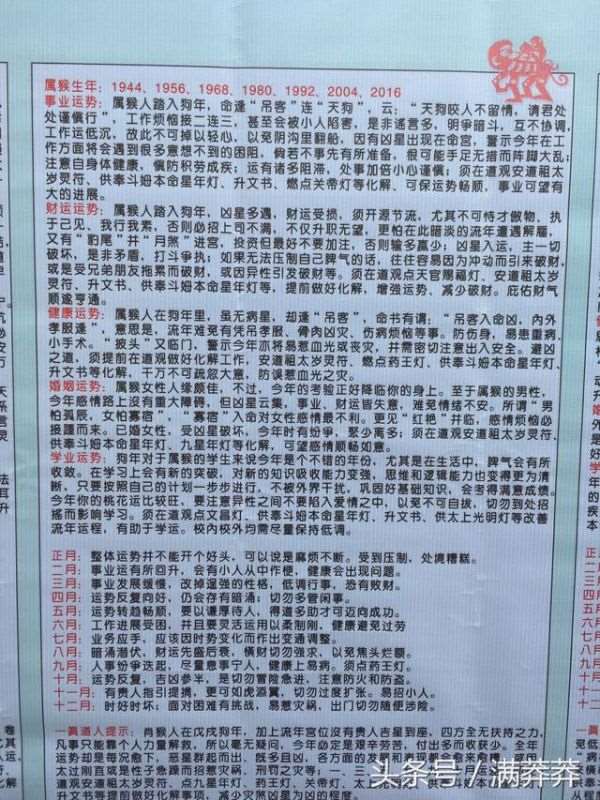 属猴生年：1944、1956、1968、1980、1992、2004、2016
事业运势：属猴人踏入狗年，命逢“吊客”连“天狗”，云：“天狗咬人不留情，请君处
处谨慎行”，工作烦恼接二连三，甚至会被小人陷害，是非谣言多，明争暗斗，互不协调，
工作运低沉，故此不可掉以轻心，以免阴沟里翻船，因有凶星出现在命宫，警示今年在工
作方面将会遇到很多意想不到的困阻，倘若不事先有所准备，很可能手足无措而阵脚大乱；
注意自身体健康，慎防积劳成疾；运有诸多阻滞，处事加倍小心谨慎；须在道观安道祖太
岁灵符、供奉斗姆本命星年灯、升文书、燃点关帝灯等化解、可保运势畅顺，事业可望有
大的进展。
财运运势：属猴人踏入狗年，凶星多遇，财运受损，须开源节流，尤其不可恃才傲物、执
于己见、我行我素，否则必招上司不满，不仅升职无望，更怕在此暗淡的流年里遭遇解雇，
又有“豹尾”并“月煞”进宫，投资但最好不要加注，否则输多赢少；凶星入运，主一切
破坏，是非矛盾、打斗争执；如果无法压制自己脾气的话，往往容易因为冲动而引来破财，
或是受兄弟朋友拖累而破财，或因异性引发破财等。须在道观点天官赐福灯、安道祖太岁
灵符、升文书、供奉斗姆本命星年灯等，提前做好化解，增强运势、减少破财。庇佑财气
顺遂亨通。
健康运势：属猴人在狗年里，虽无病星，却逢“吊客”，命书有谓：“吊客入命凶，内外
孝服逢”，意思是，流年难免有凭吊孝服、骨肉凶灾、伤病烦恼等事。防伤身，易患重病、
小手术。“披头”又临门，警示今年亦将易惹血光或丧灾，并需密切注意出入安全。避凶
之道，须提前在道观做好化解工作，安道祖太岁灵符、燃点药王灯、供奉斗姆本命星年灯、
升文书等化解，千万不可疏忽大意，防误惹血光之灾。
婚姻运势：属猴女性人缘颇佳，不过，今年的考验正好降临你的身上。至于属猴的男性，
今年感情路上没有重大障碍，但凶星云集，事业、财运皆失意，难免情绪不安。所谓“男
怕孤辰，女怕寡宿”，“寡宿”入命对女性感情最不利。更见“红艳”并临，感情烦恼必
接踵而来。已婚女性，受凶星破坏，今年时有纷争，聚少离多；须在道观安道祖太岁灵符、
供奉斗姆本命星年灯、九星星年灯等化解，可望感情顺畅如意。
学业运势：狗年对于属猴的学生来说今年是个不错的年份，尤其是在生活中，脾气会有所
收敛。在学习上会有新的突破，对新的知识吸收能力变强，思维和逻辑能力也变得更为清
晰，只要按照自己的计划一步步进行，不被外界干扰，巩固好基础知识，会考得满意成绩。
今年你的桃花运比较旺，要注意异性之间不要陷入爱情之中，以免不可自拔，切勿到处招
摇而影响学习。须在道观点文昌灯、供奉斗姆本命星年灯、升文书、供太上光明灯等改善
流年运程，有助于学运。校内校外均需尽量保持低调。
正月：整体运势并不能开个好头，可以说是麻烦不断。受到压制，处境糟糕。
二月：事业运有所回升，会有小人从中作梗，健康会出现问题。
三月：事业发展缓慢，改掉逞强的性格，低调行事，恐有败财。
四月：运势反复向好，仍会存有暗涌；切勿多管闲事。
五月：运势转趋畅顺，要以谦厚待人，得道多助才可迈向成功。
六月：工作进展受困，并且要灵活运用以柔制刚，健康避免过劳
七月：业务应手，应该因时势变化而作出变通调整。
八月：暗涌潜伏，财运先盛后衰，横财切勿强求，以免焦头烂额。
九月：人事纷争迭起，尽量息事宁人，健康上易病。须点药王灯。
十月：运势反复，吉凶参半，是切勿冒险急进、注意防火和防盗。
十一月：有贵人指引提携，更可如虎添翼，切勿过度扩张。易招小人。
十二月：时好时坏；面对困难有挑战，易惹灾祸，出门切勿随便涉险。
一真道人提示：肖猴人在戊戌狗年，加上流年宫位没有贵人吉星到座，四方全无扶持之力，
凡事只能靠个人力量解救，所以毫无疑问，今年必定是艰辛劳苦，付出多而收获少。全年
运势却是每况愈下，恶星群起而出，既多且凶，各方面的发展和
太过刚直或是性子急躁而招惹灾祸、刑罚之灾等；一、三、
头条号／满莽莽